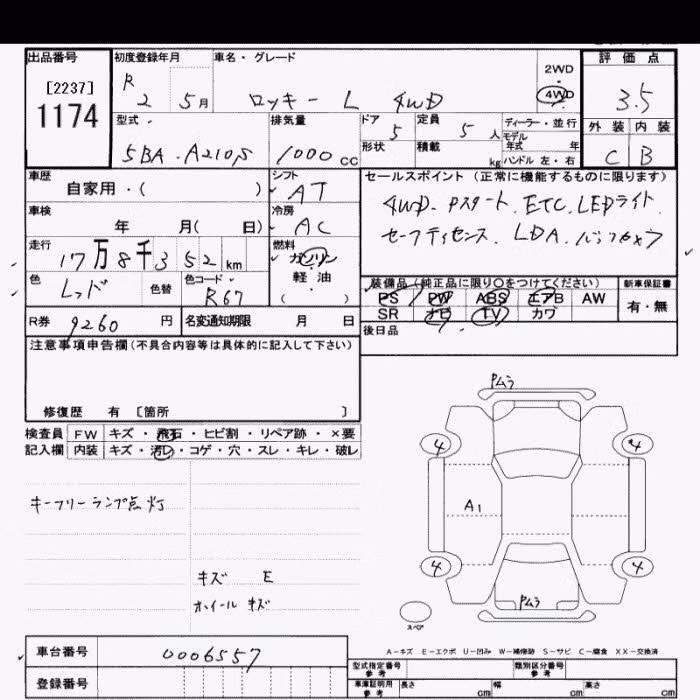 出品番号 初度登録年月 車名・グレード 2WD 評価点
[2237] R 2 5月 ロッキー L 4WD ・ 4WD 3.5
1174 型式 排気量 ドア 5 定員 5人 ディーラー・並行 外装 内装
モデル年式 年
5BA-A210S 1000cc 形状 積載 kg ハンドル 左・右 C B
車歴 シフト セールスポイント (正常に機能するものに限ります)
自家用・( ) AT 4WD. Pスタート. ETC. LEDライト
車検 冷房
年 月( 日) AC セーフティセンス. LDA.
走行 燃料
17万8千352km ガソリン
色 色替 色コード 軽油 装備品(純正品に限り○をつけてください) 新車保証書
レッド R67 ( ) PS PW ABS エアB AW 有・無
SR ナビ TV カワ
R券 9260円 名変通知期限 月 日 後日品
注意事項申告欄(不具合内容等は具体的に記入して下さい)
修復歴 有 [箇所 ]
検査員 FW キズ・飛石・ヒビ割・リペア跡・×要
記入欄 内装 キズ・汚レ・コゲ・穴・スレ・キレ・破レ
Pムラ
4 4
キーフリーランプ点灯 A1
4 4
キズ E Pムラ
ホイールキズ
スペア
A-キズ E-エクボ U-凹み W-補修跡 S-サビ C-腐食 XX-交換済
車台番号 0006557 型式指定番号 参考 類別区分番号 参考
登録番号 車庫証明用 参考 長さ cm 幅 cm 高さ cm